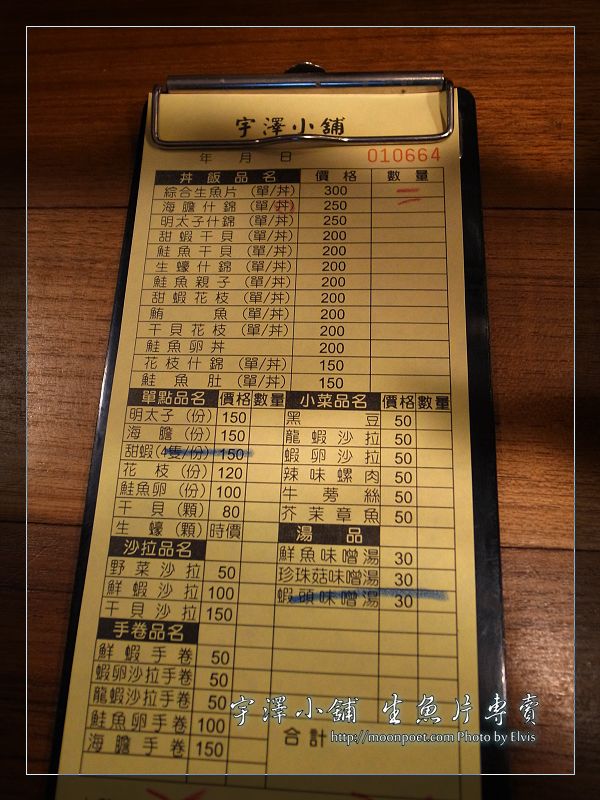 宇澤小舖
年 月 日 010664
丼飯品名 價格 數量
綜合生魚片 (單/丼) 300
海膽什錦 (單/丼) 250
明太子什錦 (單/丼) 250
甜蝦干貝 (單/丼) 200
鮭魚干貝 (單/丼) 200
生蠔什錦 (單/丼) 200
鮭魚親子 (單/丼) 200
甜蝦花枝 (單/丼) 200
鮪魚 (單/丼) 200
干貝花枝 (單/丼) 200
鮭魚卵丼 200
花枝什錦 (單/丼) 150
鮭魚肚 (單/丼) 150
單點品名 價格 數量
明太子 (份) 150
海膽 (份) 150
甜蝦(4隻/份) 150
花枝 (份) 120
鮭魚卵 (份) 100
干貝 (顆) 80
生蠔 (顆) 時價
沙拉品名
野菜沙拉 50
鮮蝦沙拉 100
干貝沙拉 150
手卷品名
鮮蝦手卷 50
蝦卵沙拉手卷 50
龍蝦沙拉手卷 50
鮭魚卵手卷 100
海膽手卷 150
小菜品名 價格 數量
黑豆 50
龍蝦沙拉 50
蝦卵沙拉 50
辣味螺肉 50
牛蒡絲 50
芥茉章魚 50
湯品
鮮魚味噌湯 30
珍珠菇味噌湯 30
蝦頭味噌湯 30
合計
宇澤小舖 生魚片專賣
http://moonpoet.com Photo by Elvis